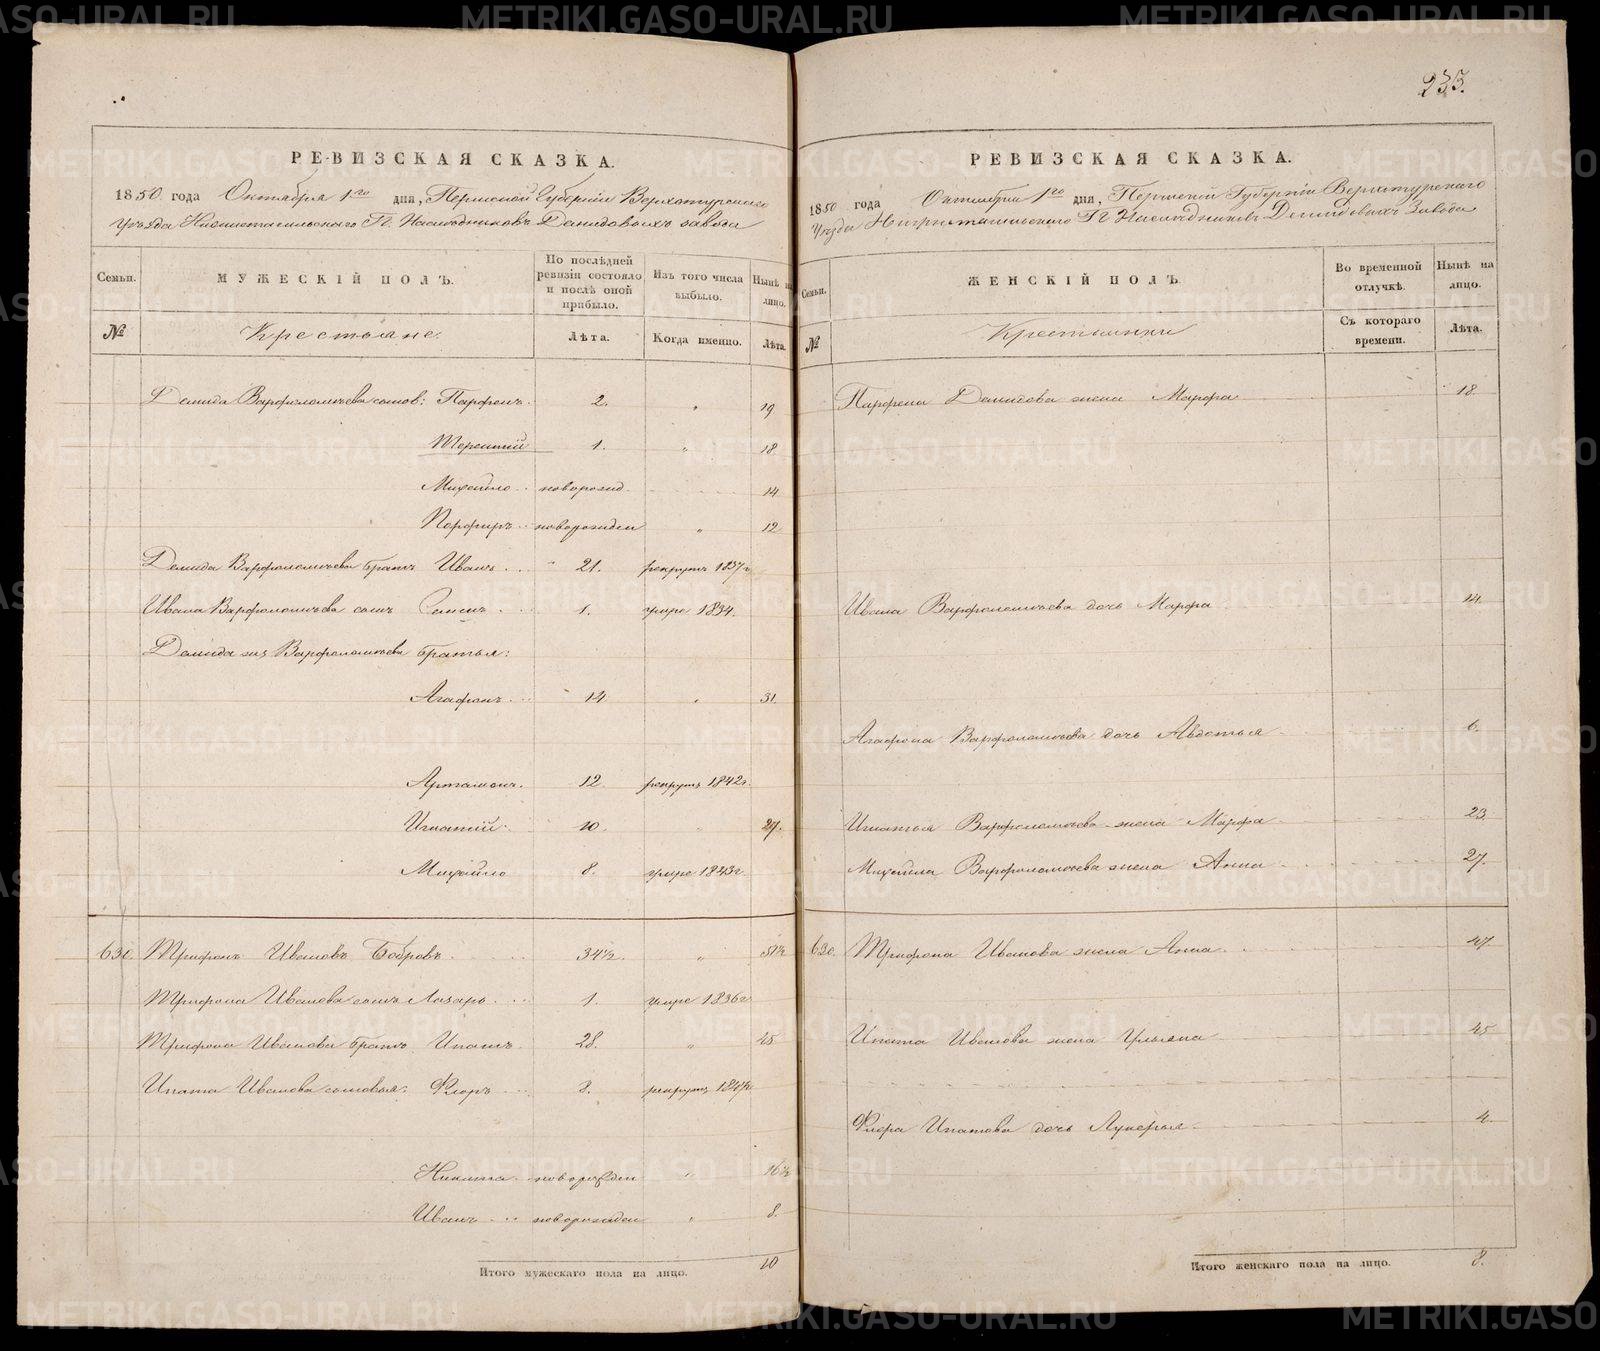 233.
РЕВИЗСКАЯ СКАЗКА.
1850 года Октября 1го дня, Пермской Губернiи Верхотурскаго
Уѣзда Нижнетагильскаго Гг. Наслѣдниковъ Демидовыхъ завода
Семьи.
МУЖЕСКІЙ ПОЛЪ.
По послѣдней ревизіи состояло и послѣ оной прибыло.
Изъ того числа выбыло.
Нынѣ на лицо.
№
Крестьяне
Лѣта.
Когда именно.
Лѣта.
Демида Варфоломѣева сынов: Парфенъ 2. " 19
Терентий 1. " 18
Михайло новорожд. 14
Порфиръ новорожден " 12
Демида Варфоломѣева братъ Иванъ 21. рекрутъ 1837г
Ивана Варфоломѣева сынъ 1. умре 1834.
Демида Варфоломѣева братья:
Агафонъ 14 " 31.
Артамонъ. 12. рекрутъ 1842г.
Игнатій 10. " 27.
Михайло 8. умре 1843г.
630. Трифонъ Ивановъ Бобровъ 34½. " 51½
Трифона Иванова сынъ Лазарь 1. умре 1836г
Трифона Иванова братъ Ипатъ 28. " 45
Ипата Иванова сыновья: Флоръ рекрутъ
Никита новорожден " 16½
Иванъ новорожден " 8.
Итого мужескаго пола на лицо. 10
РЕВИЗСКАЯ СКАЗКА.
1850 года Октября 1го дня, Пермской Губерніи Верхотурскаго
Уѣзда Нижнетагильскаго Гг Наслѣдниковъ Демидовыхъ Завода
Семьи.
ЖЕНСКІЙ ПОЛЪ
Во временной отлучкѣ.
Нынѣ на лицо.
№
Крестьянки
Съ котораго времени.
Лѣта.
Парфена Демидова жена Марфа 18.
Ивана Варфоломѣева дочь Марфа 14.
Агафона Варфоломѣева дочь Авдотья 6.
Игнатья Варфоломѣева жена Марфа 23.
Михайла Варфоломѣева жена Анна 27.
630. Трифона Иванова жена Анна 47
Ипата Иванова жена Ульяна 45
Флора Ипатова дочь Лукерья 4.
Итого женскаго пола на лицо. 8.
METRIKI.GASO-URAL.RU